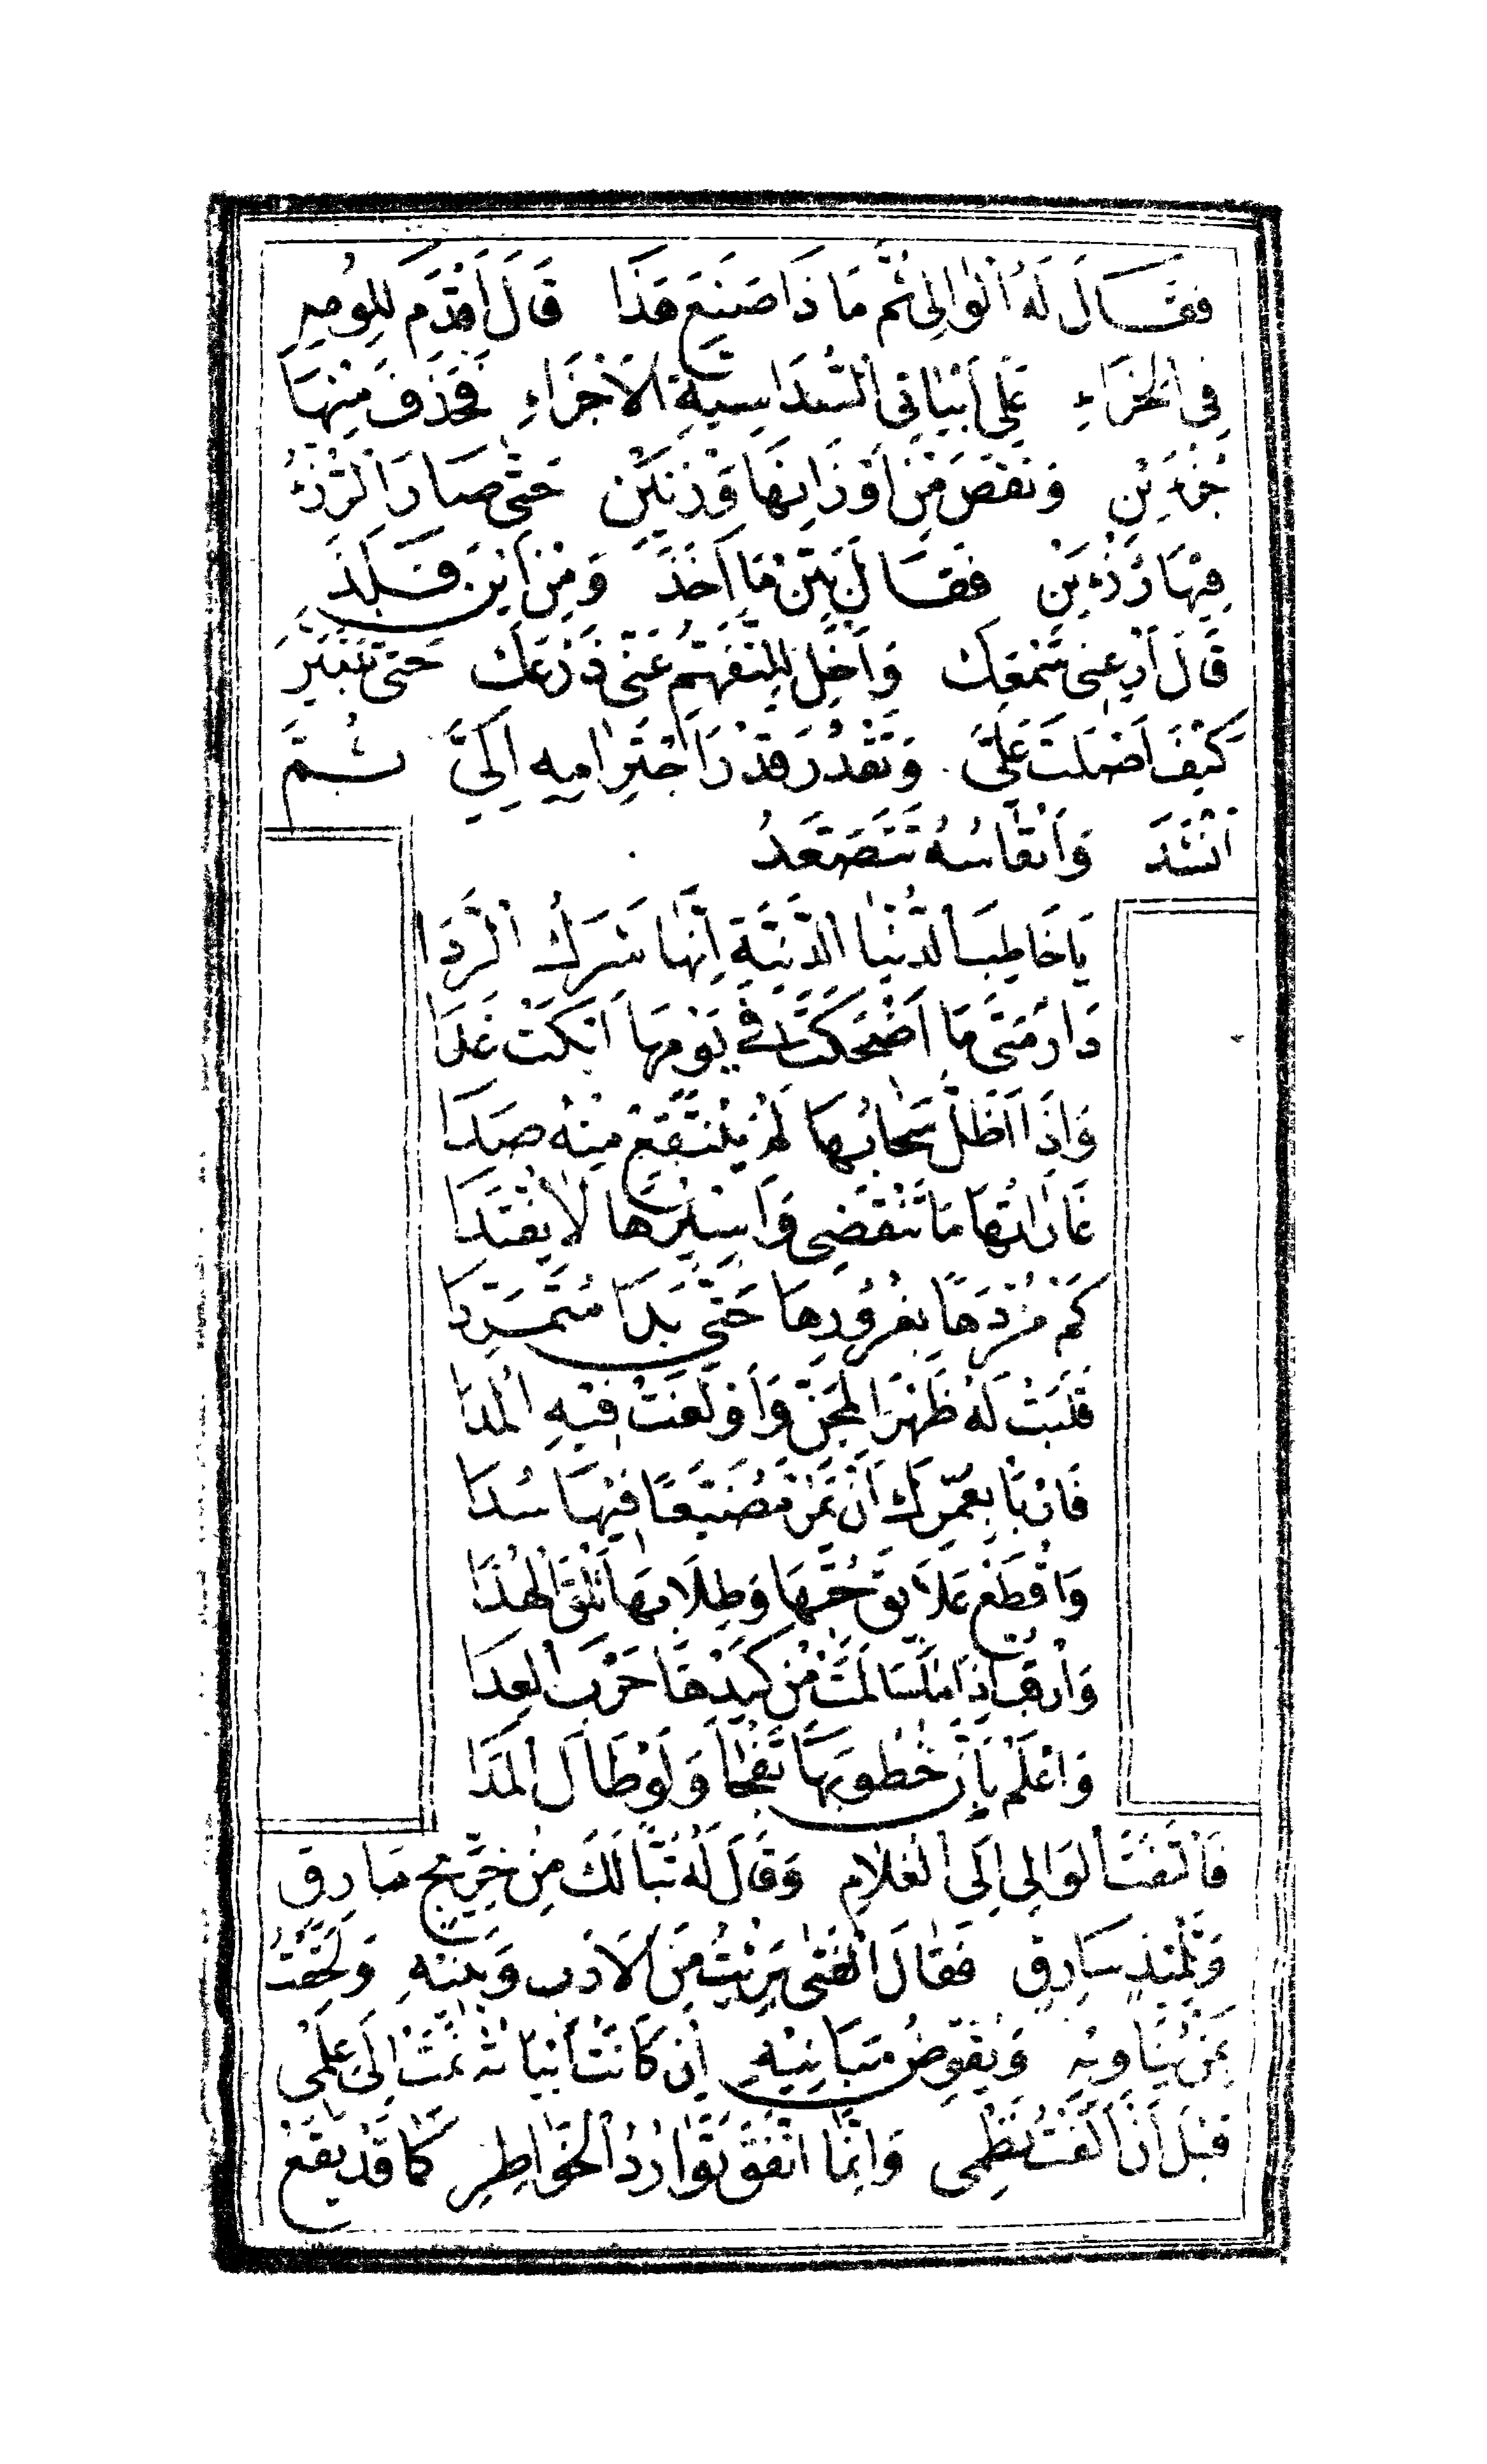 فَقَالَ لَهُ الْوَالِي ثُمَّ مَا ذَا صَنَعَ هَذَا قَالَ أَقْدَمَ لِلُومِهِ
فِي الْجَزَاءِ عَلَى أَبْيَاتِي السُّدَاسِيَّةِ الْأَجْزَاءِ فَحَذَفَ مِنْهَا
جُزْءَيْنِ وَنَقَصَ مِنْ أَوْزَانِهَا وَزْنَيْنِ حَتَّى صَارَ الرُّزْءُ
فِيهَا رُزْءَيْنِ فَقَالَ بَيِّنْ مَا أَخَذَ وَمِنْ أَيْنَ فَلَذَ
قَالَ أَرْعِنِي سَمْعَكَ وَأَخْلِ لِلتَّفَهُّمِ عَنِّي ذَرْعَكَ حَتَّى تَتَبَيَّنَ
كَيْفَ أَصْلَتَ عَلَيَّ وَتَقْدُرَ قَدْرَ اجْتِرَامِهِ إِلَيَّ ثُمَّ
أَنْشَدَ وَأَنْفَاسُهُ تَتَصَعَّدُ
يَا خَاطِبَ الدُّنْيَا الدَّنِيَّةِ إِنَّهَا شَرَكُ الرَّدَا
دَارٌ مَتَى مَا أَضْحَكَتْ فِي يَوْمِهَا أَبْكَتْ غَدَا
وَإِذَا أَظَلَّ سَحَابُهَا لَمْ يَنْتَقِعْ مِنْهُ صَدَا
غَارَاتُهَا مَا تَنْقَضِي وَأَسِيرُهَا لَا يُفْتَدَا
كَمْ مُزْدَهًا بِغُرُورِهَا حَتَّى بَدَا مُتَمَرِّدَا
قَلَبَتْ لَهُ ظَهْرَ الْمِجَنِّ وَأَوْلَغَتْ فِيهِ الْمُدَا
فَارْبَأْ بِعُمْرِكَ أَنْ تَمُرَّ مُضَيَّعًا فِيهَا سُدَا
وَاقْطَعْ عَلَائِقَ حُبِّهَا وَطِلَابِهَا تَلْقَ الْهُدَا
وَارْقُبْ إِذَا مَا سَالَمَتْ مِنْ كَيْدِهَا حَرْبَ الْعِدَا
وَاعْلَمْ بِأَنَّ خُطُوبَهَا تَفْجَا وَلَوْ طَالَ الْمَدَا
فَالْتَفَتَ الْوَالِي إِلَى الْغُلَامِ وَقَالَ لَهُ تَبًّا لَكَ مِنْ خِرِّيجٍ مَارِقٍ
وَتِلْمِيذٍ سَارِقٍ فَقَالَ الْفَتَى بَرِئْتُ مِنَ الْأَدَبِ وَبَنِيهِ وَلَحِقْتُ
بِمَنْ يُنَاوِيهِ وَيُقَوِّضُ مَبَانِيهِ إِنْ كَانَتْ أَبْيَاتُهُ نَمَتْ إِلَى عِلْمِي
قَبْلَ أَنْ أَلَّفْتُ نَظْمِي وَإِنَّمَا اتَّفَقَ تَوَارُدُ الْخَوَاطِرِ كَمَا قَدْ يَقَعُ